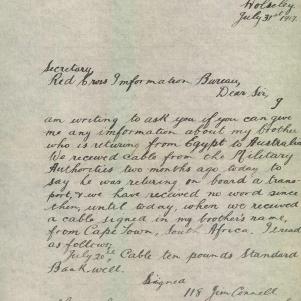 Wolseley
July 31st 1917.
Secretary,
Red Cross Imformation Bureau,
Dear Sir,
I
am writing to ask you if you can give
me any imformation about my brother
who is returing from Egypt to Australia
We received cable from the Military
Authorties two months ago today to
say he was returing on board a trans-
port, & we have recieved no word since
then, until today, when we received
a cable signed in my brother's name,
from Cape Town, South Africa. It reads
as follows,
July 20th, Cable ten pounds Standard
Bank well.
Signed
118 Jim Connell